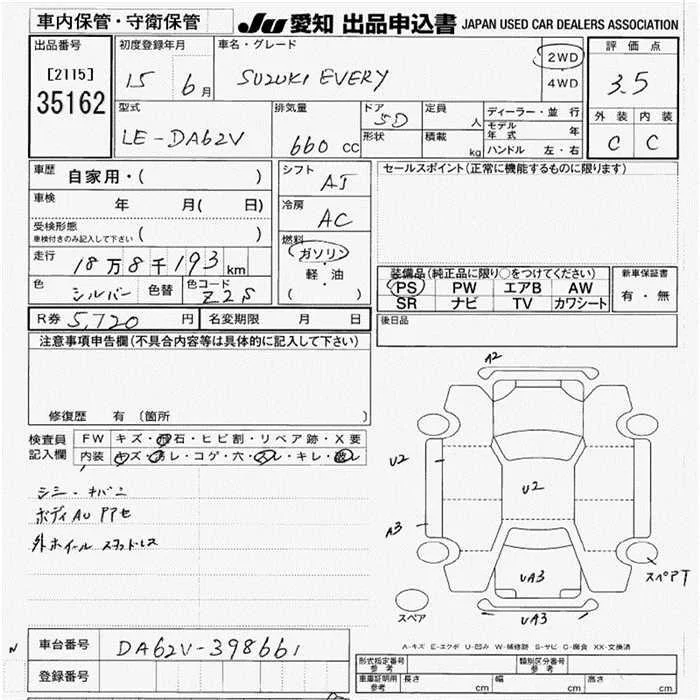 車内保管・守衛保管
JU愛知 出品申込書 JAPAN USED CAR DEALERS ASSOCIATION
出品番号
[2115]
35162
初度登録年月
15 6月
車名・グレード
SUZUKI EVERY
2WD
4WD
評価点
3.5
外装 内装
C C
型式
LE-DA62V
排気量
660 cc
ドア
5D
形状
定員
人
積載
kg
ディーラー・並行
モデル年式 年
ハンドル 左・右
車歴 自家用・( )
車検 年 月( 日)
受検形態
車検付きのみ記入して下さい ( )
走行 18万8千193 km
色 シルバー 色替 色コード Z2S
シフト
AT
冷房
AC
燃料
ガソリン
軽・油
( )
セールスポイント(正常に機能するものに限ります)
装備品(純正品に限り○をつけてください)
PS PW エアB AW
SR ナビ TV カワシート
新車保証書
有・無
R券 5,720 円 名変期限 月 日
後日品
注意事項申告欄(不具合内容等は具体的に記入して下さい)
修復歴 有 (箇所 )
検査員
記入欄
FW キズ・飛石・ヒビ割・リペア跡・X要
内装 キズ・汚レ・コゲ・穴・スレ・キレ・破レ
ボディAU PPセ
A2
U2
U2
A3
UA3
UA3
スペアT
スペア
A-キズ E-エクボ U-凹み W-補修跡 S-サビ C-腐食 XX-交換済
N
車台番号 DA62V-398661
登録番号
形式指定番号
参考
類別区分番号
参考
車庫証明用
参考
長さ cm 幅 cm 高さ cm